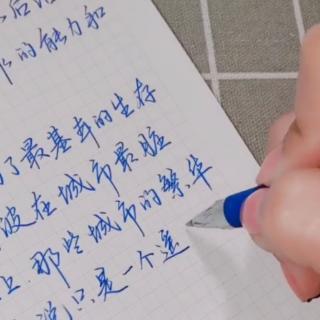 后
的能力和
了最基本的生存
波在城市最脏
上.那些城市的繁华
说只是一个遥